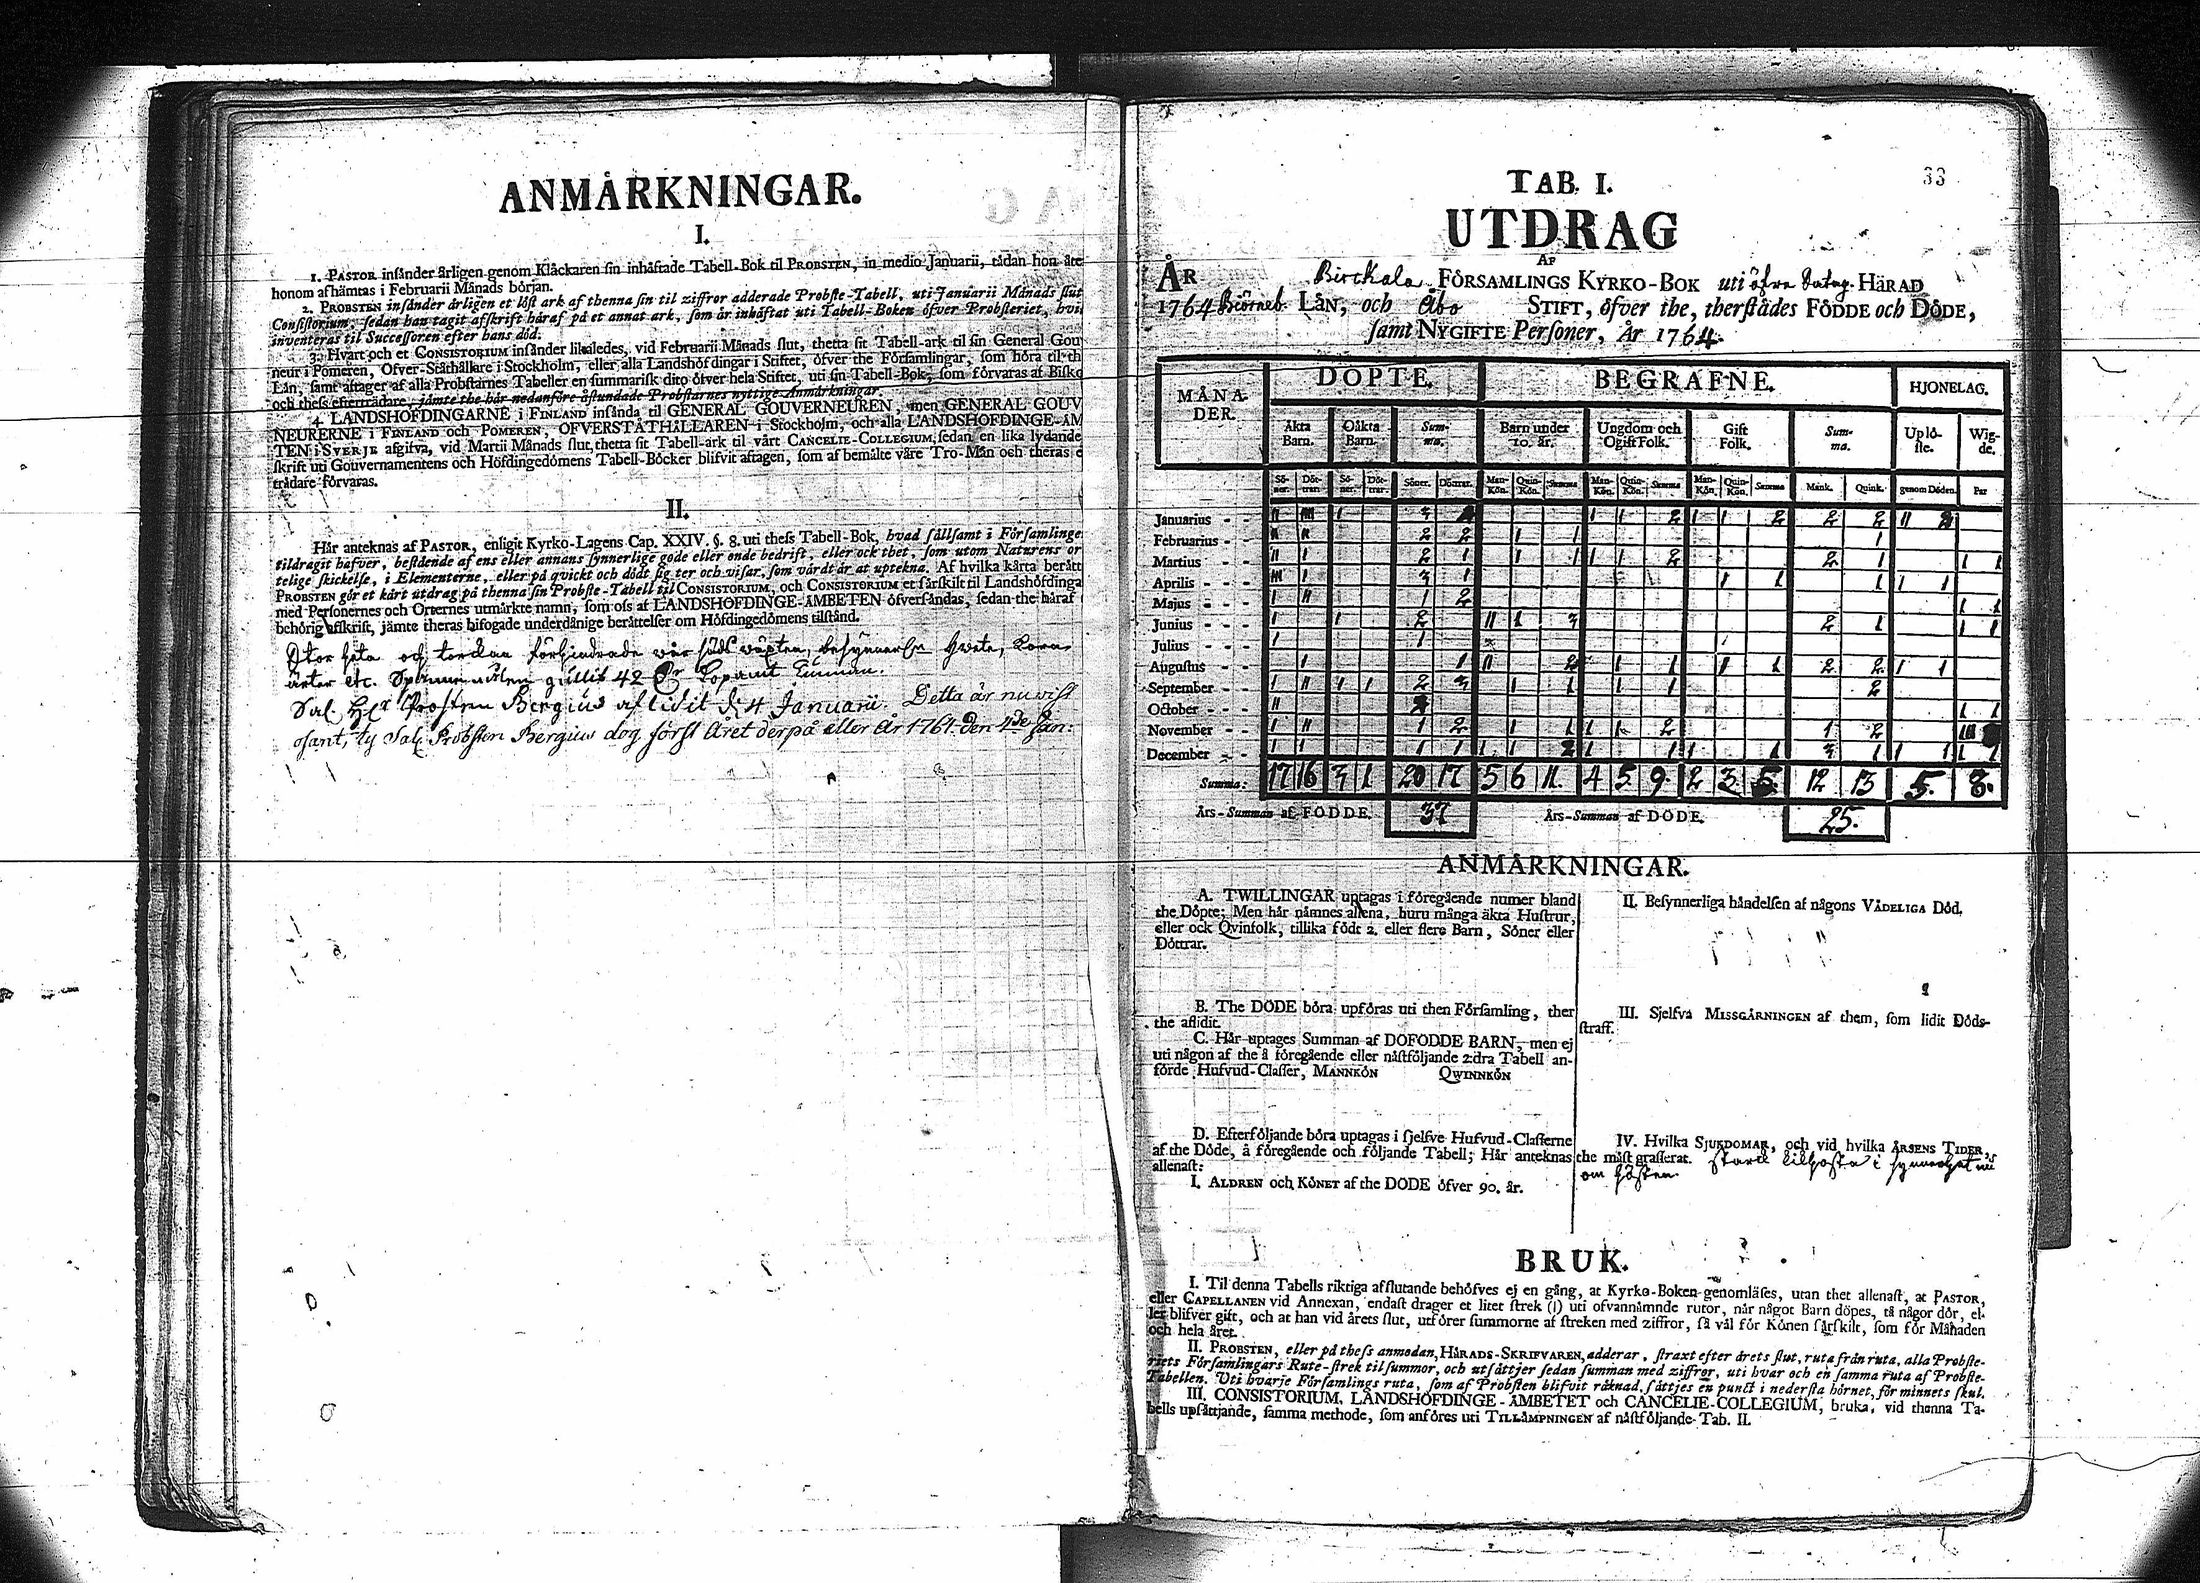 ANMÄRKNINGAR.
I.
1. PASTOR insänder årligen genom Klåckaren sin inhäftade Tabell-Bok til PROBSTEN, in medio Januarii, tådan hon åte
honom afhämtas i Februarii Månads början.
2. PROBSTEN insänder årligen et löst ark af thenna sin til ziffror adderade Probste-Tabell, uti Januarii Månads slut
Consistorium, sedan han tagit afskrift häraf på et annat ark, som är inhäftat uti Tabell-Boken öfver Probsteriet, hvi
inventeras til Successoren efter hans död.
3. Hvart och et CONSISTORIUM insänder likaledes, vid Februarii Månads slut, thetta sit Tabell-ark til sin General Gou
neur i Pomeren, Öfver-Ståthållare i Stockholm, eller alla Landshöfdingar i Stiftet, öfver the Församlingar, som höra til th
Län, samt aftager af alla Probstarnes Tabeller en summarisk dito öfver hela Stiftet, uti sin Tabell-Bok, som förvaras af Bisko
och thess efterträdare, jämte the här nedanföre åstundade Probstarnes nyttige Anmärkningar.
4. LANDSHÖFDINGARNE i FINLAND insända til GENERAL GOUVERNEUREN, men GENERAL GOUV
NEURERNE i FINLAND och POMEREN, ÖFVERSTÅTHÅLLAREN i Stockholm, och alla LANDSHÖFDINGE-ÄM
TEN i SVERJE afgifva, vid Martii Månads slut, thetta sit Tabell-ark til vårt CANCELIE-COLLEGIUM, sedan en lika lydande
skrift uti Gouvernamentens och Höfdingedömens Tabell-Böcker blifvit aftagen, som af bemälte våre Tro-Män och theras e
trädare förvaras.
II.
Här anteknas af PASTOR, enligit Kyrko-Lagens Cap. XXIV. §. 8. uti thess Tabell-Bok, hvad sällsamt i Församlinge
tildragit hafver, bestående af ens eller annans synnerlige gode eller onde bedrift, eller ock thet, som utom Naturens or
telige skickelse, i Elementerne, eller på qvickt och dödt sig ter och visar, som värdt är at uptekna. Af hvilka kårta berätt
PROBSTEN gör et kårt utdrag på thenna sin Probste-Tabell til CONSISTORIUM, och CONSISTORIUM et särskilt til Landshöfdinga
med Personernes och Orternes utmärkte namn, som oss af LANDSHÖFDINGE-ÄMBETEN öfversändas, sedan the häraf
behörig afskrift, jämte theras bifogade underdånige berättelser om Höfdingedömens tilstånd.
Stor heta och torckan förhindrade vår säds växten, besynnerl. hvete, Korn,
ärter etc. gullit 42
Sal. Hr Prosten Bergius aflidit d. 4 Januarii. Detta är nu vist
osant, ty Sal. Probsten Bergius dog först Året derpå eller År 1764 den 4de Jan:
33
TAB. I.
UTDRAG
AF
ÅR Birckala FÖRSAMLINGS KYRKO-BOK uti öfre Satag. HÄRAD
1764 Biörneb. LÄN, och Åbo STIFT, öfver the, therstädes FÖDDE och DÖDE,
samt NYGIFTE Personer, År 1764.
MÅNA-DER. DÖPTE. BEGRAFNE. HJONELAG.
Äkta Barn. Oäkta Barn. Summa. Barn under 10. år. Ungdom och Ogift Folk. Gift Folk. Summa. Uplöste. Wigde.
Söner. Döttrar. Söner. Döttrar. Söner. Döttrar. Man-Kön. Quin-Kön. Summa Man-Kön. Quin-Kön. Summa Man-Kön. Quin-Kön. Summa Mank. Quink. genom Döden. Par
Januarius - - II IIII I 3 I I 2 I I 2 2 2 II 2
Februarius - - II II 2 2 I 1 1
Martius - - II I 2 1 I 1 I I 2 2 1 I 1
Aprilis - - III I 3 1 I 1 1 I 1
Majus - - I II 1 2 I 1
Junius - - I I 2 II I 3 2 1 I 1
Julius - - I 1
Augustus - - I 1 II 2 I 1 II 1 2 2 I 1
September - - I II I I 2 3 I 1 I 1 2
October - - II I 1
November - - I II 1 2 I 1 I I 2 1 2 III
December - - I I 1 1 I I 2 I 1 I 1 3 1 I 1 I 1
Summa: 17 16 3 1 20 17 5 6 11. 4 5 9. 2 3 5 12 13 5. 8.
Års-Summan af FÖDDE. 37 Års-Summan af DÖDE. 25.
ANMÄRKNINGAR.
A. TWILLINGAR uptagas i föregående numer bland
the Döpte; Men här nämnes allena, huru många äkta Hustrur,
eller ock Qvinfolk, tillika födt 2. eller flere Barn, Söner eller
Döttrar.
B. The DÖDE böra upföras uti then Församling, ther
the aflidit.
C. Här uptages Summan af DÖFÖDDE BARN, men ej
uti någon af the å föregående eller nästföljande 2:dra Tabell an-
förde Hufvud-Classer, MANNKÖN QWINNKÖN
D. Efterföljande böra uptagas i sjelfve Hufvud-Classerne
af the Döde, å föregående och följande Tabell; Här anteknas
allenast:
I. ÅLDREN och KÖNET af the DÖDE öfver 90. år.
II. Besynnerliga händelsen af någons VÅDELIGA Död.
III. Sjelfva MISSGÄRNINGEN af them, som lidit Döds-
straff.
IV. Hvilka SJUKDOMAR, och vid hvilka ÅRSENS TIDER,
the mäst grasserat. starck kikhosta i synnerhet
om hösten.
BRUK.
I. Til denna Tabells riktiga afslutande behöfves ej en gång, at Kyrko-Boken genomläses, utan thet allenast, at PASTOR,
eller CAPELLANEN vid Annexan, endast drager et litet strek (|) uti ofvannämnde rutor, når något Barn döpes, tå någor dör, el-
ler blifver gift, och at han vid årets slut, utförer summorne af streken med ziffror, så väl för Könen särskilt, som för Månaden
och hela året.
II. PROBSTEN, eller på thess anmodan, HÄRADS-SKRIFVAREN, adderar, straxt efter årets slut, ruta från ruta, alla Probste-
riets Församlingars Rute-strek til summor, och utsättjer sedan summan med ziffror, uti hvar och en samma ruta af Probste-
Tabellen. Uti hvarje Församlings ruta, som af Probsten blifvit räknad, sättjes en punct i nedersta hörnet, för minnets skul.
III. CONSISTORIUM, LANDSHÖFDINGE-ÄMBETET och CANCELIE-COLLEGIUM, bruka, vid thenna Ta-
bells upsättjande, samma methode, som anföres uti TILLÄMPNINGEN af nästföljande Tab. II.